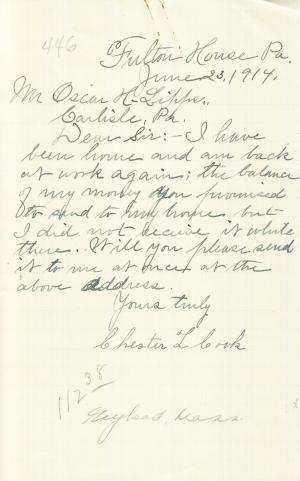 446
Fulton House Pa.
June 23, 1914.
Mr Oscar H. Lipps,
Carlisle, Pa.
Dear Sir:- I have
been home and am back
at work again; the balance
of my money you promised
to send to my home but
I did not receive it while
there. Will you please send
it to me at once at the
above address.
Yours truly
Chester L Cook
112 38
Mass.